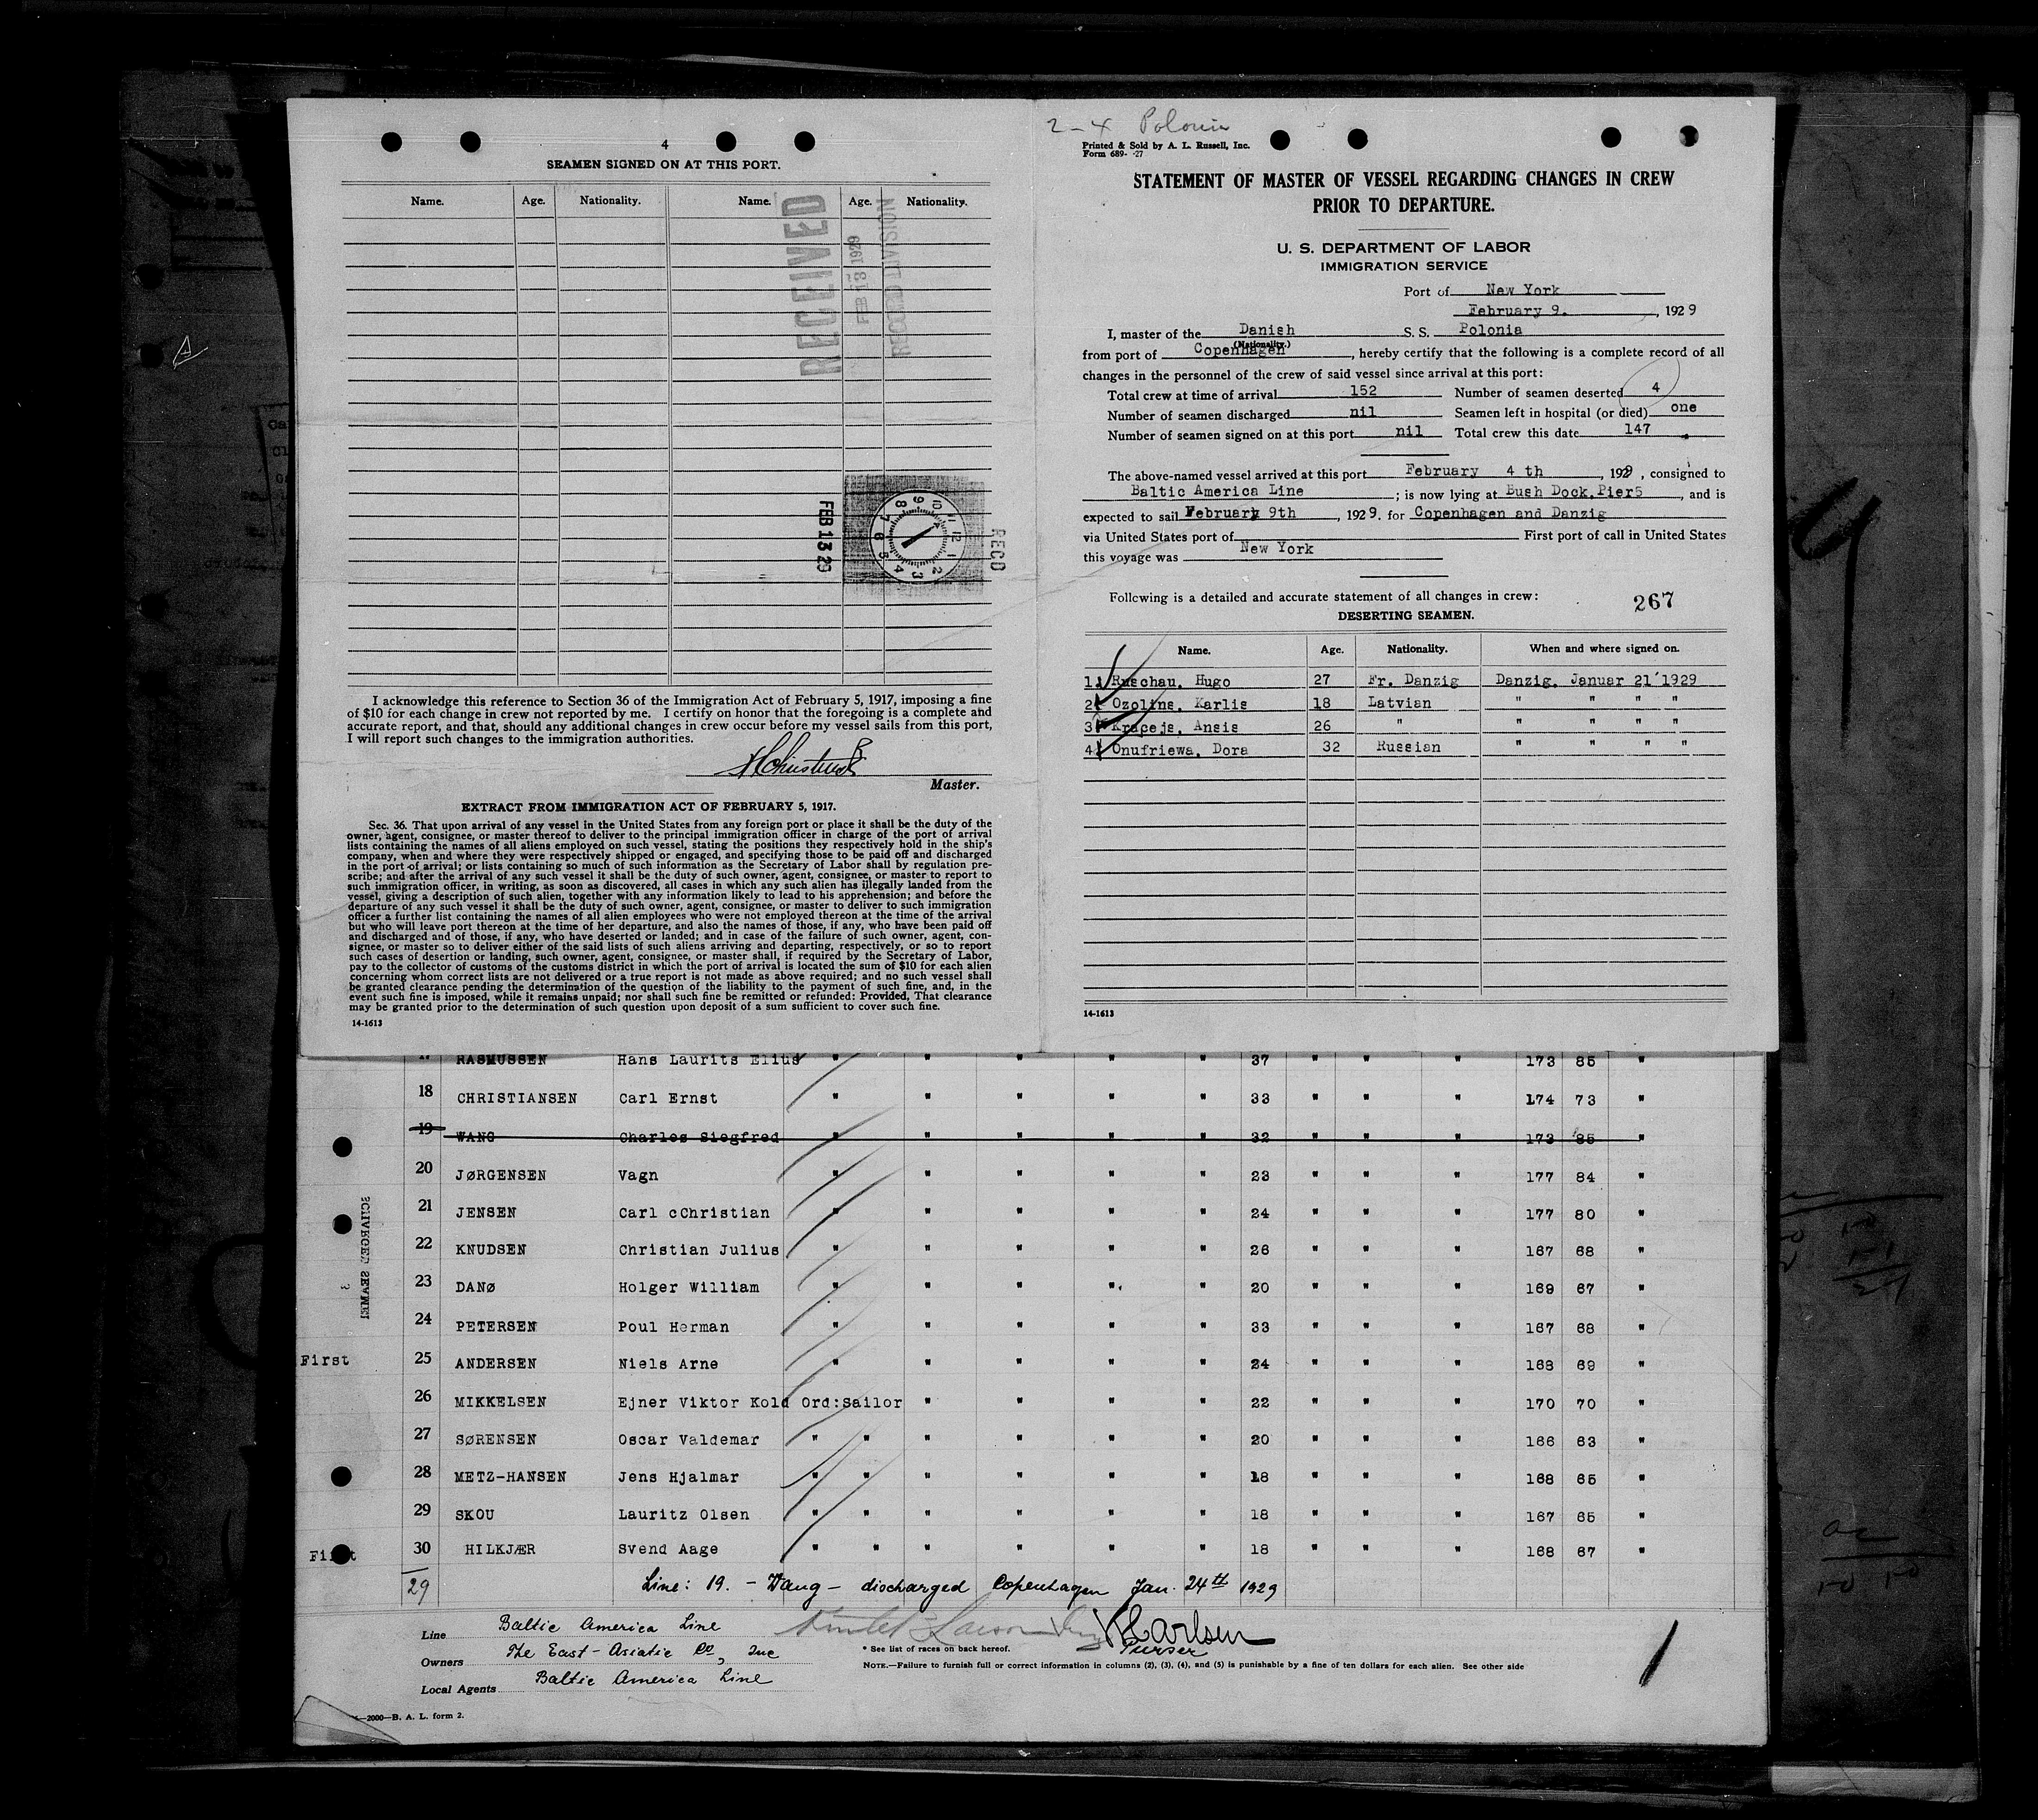 4
SEAMEN SIGNED ON AT THIS PORT.
Name. Age. Nationality. Name. Age. Nationality.
RECEIVED
FEB 13 1929
RECORD DIVISION
FEB 13 29
RECD
I acknowledge this reference to Section 36 of the Immigration Act of February 5, 1917, imposing a fine
of $10 for each change in crew not reported by me. I certify on honor that the foregoing is a complete and
accurate report, and that, should any additional changes in crew occur before my vessel sails from this port,
I will report such changes to the immigration authorities.
Master.
EXTRACT FROM IMMIGRATION ACT OF FEBRUARY 5, 1917.
Sec. 36. That upon arrival of any vessel in the United States from any foreign port or place it shall be the duty of the
owner, agent, consignee, or master thereof to deliver to the principal immigration officer in charge of the port of arrival
lists containing the names of all aliens employed on such vessel, stating the positions they respectively hold in the ship's
company, when and where they were respectively shipped or engaged, and specifying those to be paid off and discharged
in the port of arrival; or lists containing so much of such information as the Secretary of Labor shall by regulation pre-
scribe; and after the arrival of any such vessel it shall be the duty of such owner, agent, consignee, or master to report to
such immigration officer, in writing, as soon as discovered, all cases in which any such alien has illegally landed from the
vessel, giving a description of such alien, together with any information likely to lead to his apprehension; and before the
departure of any such vessel it shall be the duty of such owner, agent, consignee, or master to deliver to such immigration
officer a further list containing the names of all alien employees who were not employed thereon at the time of the arrival
but who will leave port thereon at the time of her departure, and also the names of those, if any, who have been paid off
and discharged and of those, if any, who have deserted or landed; and in case of the failure of such owner, agent, con-
signee, or master so to deliver either of the said lists of such aliens arriving and departing, respectively, or so to report
such cases of desertion or landing, such owner, agent, consignee, or master shall, if required by the Secretary of Labor,
pay to the collector of customs of the customs district in which the port of arrival is located the sum of $10 for each alien
concerning whom correct lists are not delivered or a true report is not made as above required; and no such vessel shall
be granted clearance pending the determination of the question of the liability to the payment of such fine, and, in the
event such fine is imposed, while it remains unpaid; nor shall such fine be remitted or refunded: Provided, That clearance
may be granted prior to the determination of such question upon deposit of a sum sufficient to cover such fine.
14-1613
2-4 Polonia
Printed & Sold by A. L. Russell, Inc.
Form 689- -27
STATEMENT OF MASTER OF VESSEL REGARDING CHANGES IN CREW
PRIOR TO DEPARTURE.
U. S. DEPARTMENT OF LABOR
IMMIGRATION SERVICE
Port of New York
February 9. , 1929
I, master of the Danish S. S. Polonia
(Nationality.)
from port of Copenhagen , hereby certify that the following is a complete record of all
changes in the personnel of the crew of said vessel since arrival at this port:
Total crew at time of arrival 152 Number of seamen deserted 4
Number of seamen discharged nil Seamen left in hospital (or died) one
Number of seamen signed on at this port nil Total crew this date 147
The above-named vessel arrived at this port February 4 th , 1929 , consigned to
Baltic America Line ; is now lying at Bush Dock, Pier5 , and is
expected to sail February 9th , 1929. for Copenhagen and Danzig
via United States port of First port of call in United States
this voyage was New York
Following is a detailed and accurate statement of all changes in crew:
267
DESERTING SEAMEN.
Name. Age. Nationality. When and where signed on.
1 Ruschau, Hugo 27 Fr. Danzig Danzig, Januar 21' 1929
2 Ozolins, Karlis 18 Latvian " " " "
3 Kracejs, Ansis 26 " " " " "
4 Onufriewa, Dora 32 Russian " " " "
14-1613
RASMUSSEN Hans Laurits Elius " " " " " 37 " " " 173 85 "
18 CHRISTIANSEN Carl Ernst " " " " " 33 " " " 174 73 "
19 WANG Charles Siegfred " " " " " 32 " " " 173 85 "
20 JØRGENSEN Vagn " " " " " 23 " " " 177 84 "
21 JENSEN Carl cChristian " " " " " 24 " " " 177 80 "
22 KNUDSEN Christian Julius " " " " " 26 " " " 167 68 "
23 DANØ Holger William " " " " " 20 " " " 169 67 "
24 PETERSEN Poul Herman " " " " " 33 " " " 167 68 "
First 25 ANDERSEN Niels Arne " " " " " 24 " " " 168 69 "
26 MIKKELSEN Ejner Viktor Kold Ord:Sailor " " " " 22 " " " 170 70 "
27 SØRENSEN Oscar Valdemar " " " " " " 20 " " " 166 63 "
28 METZ-HANSEN Jens Hjalmar " " " " " " 18 " " " 168 65 "
29 SKOU Lauritz Olsen " " " " " " 18 " " " 167 65 "
First 30 HILKJÆR Svend Aage " " " " " " 18 " " " 168 67 "
29 Line: 19. - Wang - discharged Copenhagen Jan. 24th 1929
Line Baltic America Line
Owners The East-Asiatic Co, Inc
Local Agents Baltic America Line
Carlsen
Purser
* See list of races on back hereof.
NOTE.—Failure to furnish full or correct information in columns (2), (3), (4), and (5) is punishable by a fine of ten dollars for each alien. See other side
2000—B. A. L. form 2.
1